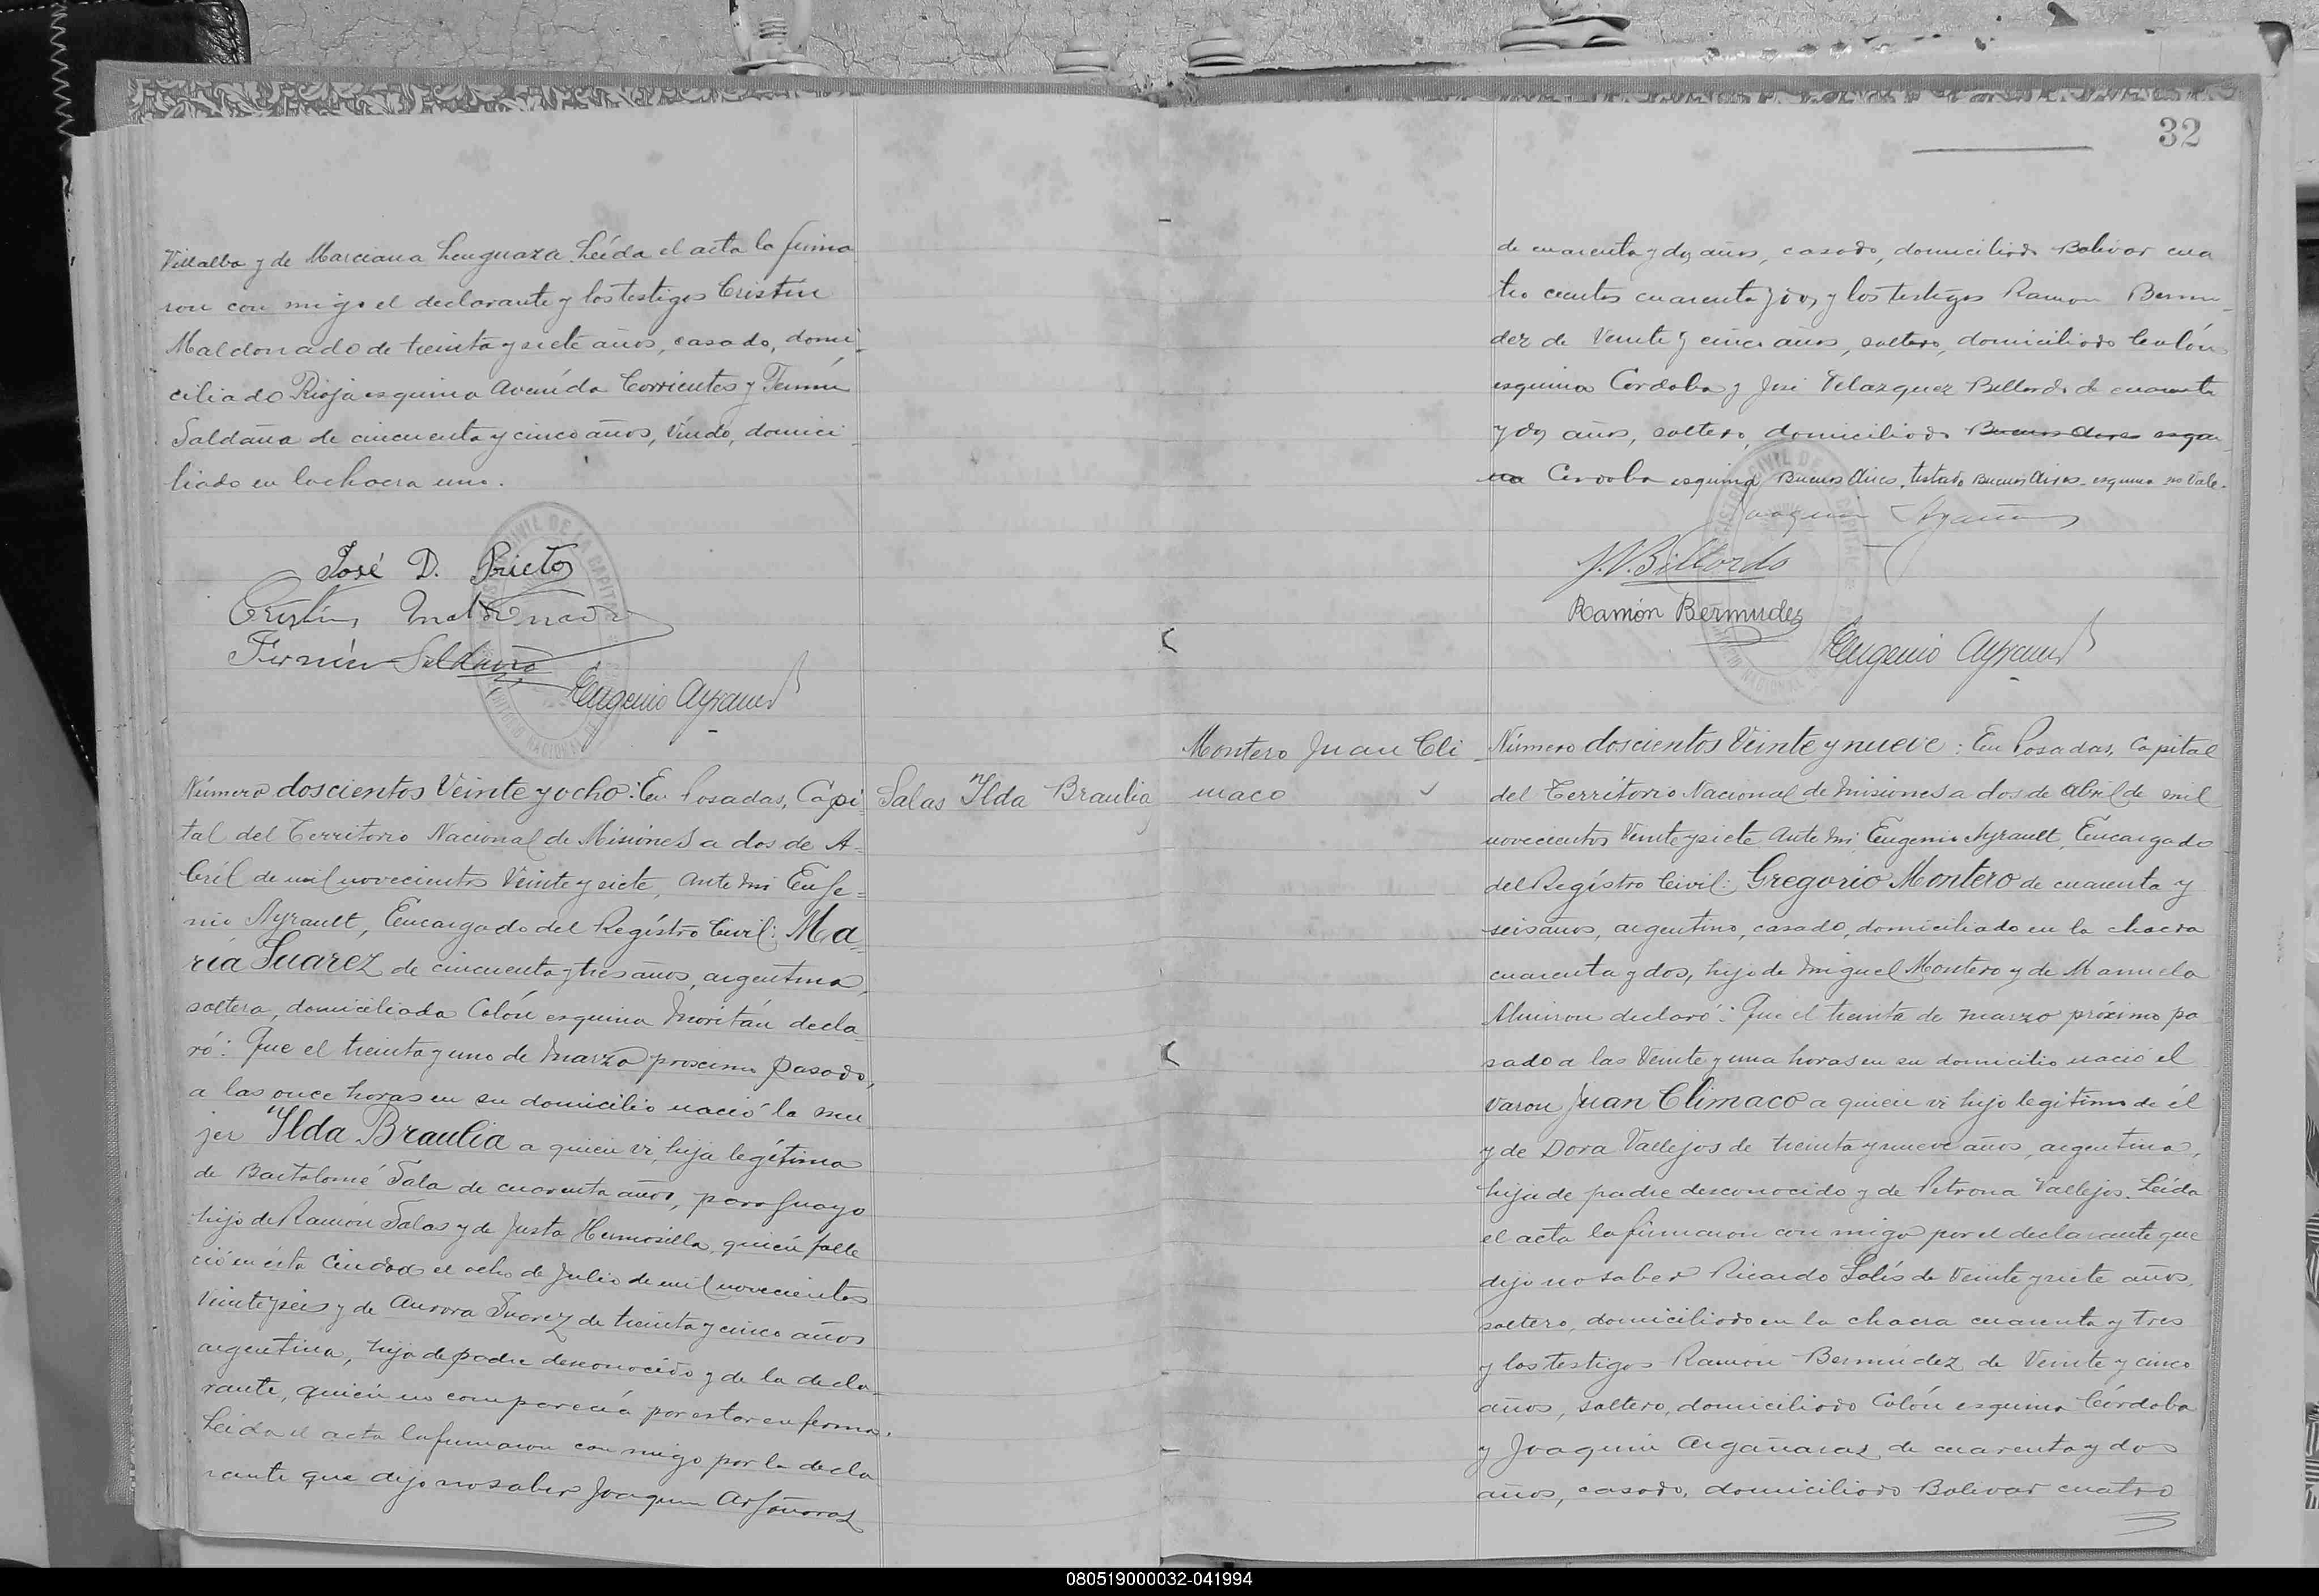 Villalba y de Marciana Lenguaza. Leída el acta la firma
ron con migo el declarante y los testigos Cristin
Maldonado de treinta y siete años, casado, domi-
ciliado Rioja esquina Avenida Corrientes y Fermin
Saldaña de cincuenta y cinco años, Viudo, domici-
liado en la chacra uno.
José D. Prieto
Cristin Maldonado
Fermin Saldaña
Eugenio Ayrault
Número doscientos Veinte y ocho: En Posadas, Capi-
tal del Territorio Nacional de Misiones a dos de A-
bril de mil novecientos Veinte y siete, Ante mi Euge=
nio Ayrault, Encargado del Registro Civil: Ma-
ría Suarez de cincuenta y tres años, argentina,
soltera, domiciliada Colón esquina Moritán decla-
ró: Que el treinta y uno de Marzo proximo pasado,
a las once horas en su domicilio nació la mu
jer Ylda Braulia a quien vi, hija legítima
de Bartolomé Sala de cuarenta años, paraguayo
hijo de Ramón Salas y de Justa Hermosilla, quien falle
ció en esta Ciudad el ocho de Julio de mil novecientos
Veinte y seis y de Aurora Suarez de treinta y cinco años
argentina, hija de padre desconocido y de la decla-
rante, quien no comparecía por estar enferma.
Leida el acta la firmaron con migo por la decla
rante que dijo no saber Joaquin Argañaraz
Salas Ylda Braulia
32
de cuarenta y dos años, casado, domiciliado Bolivar cua
tro cientos cuarenta y dos, y los testigos Ramon Bermu-
dez de Veinte y cinco años, soltero, domiciliado Colón
esquina Cordoba y José Velazquez Billordo de cuarenta
y dos años, soltero, domiciliado Buenos Aires esqui-
na Cordoba esquina Buenos Aires, testado Buenos Aires-esquina no Vale.
Joaquin
J.V. Billordo
Ramón Bermudez
Eugenio Ayrault
Montero Juan Cli-
maco
Número doscientos Veinte y nueve: En Posadas, Capital
del Territorio Nacional de Misiones a dos de Abril de mil
novecientos Veinte y siete. Ante mi Eugenio Ayrault, Encargado
del Registro Civil: Gregorio Montero de cuarenta y
seis años, argentino, casado, domiciliado en la chacra
cuarenta y dos, hijo de Miguel Montero y de Manuela
Almiron declaró: Que el treinta de marzo próximo pa
sado a las Veinte y una horas en su domicilio nació el
Varon Juan Climaco a quien vi hijo legitimo de él
y de Dora Vallejos de treinta y nueve años, argentina,
hija de padre desconocido y de Petrona Vallejos. Leida
el acta la firmaron con migo por el declarante que
dijo no saber Ricardo Solís de Veinte y siete años,
soltero, domiciliado en la chacra cuarenta y tres
y los testigos Ramón Bermúdez de Veinte y cinco
años, soltero, domiciliado Colón esquina Córdoba
y Joaquin Argañaraz de cuarenta y dos
años, casado, domiciliado Bolivar cuatro
080519000032-041994